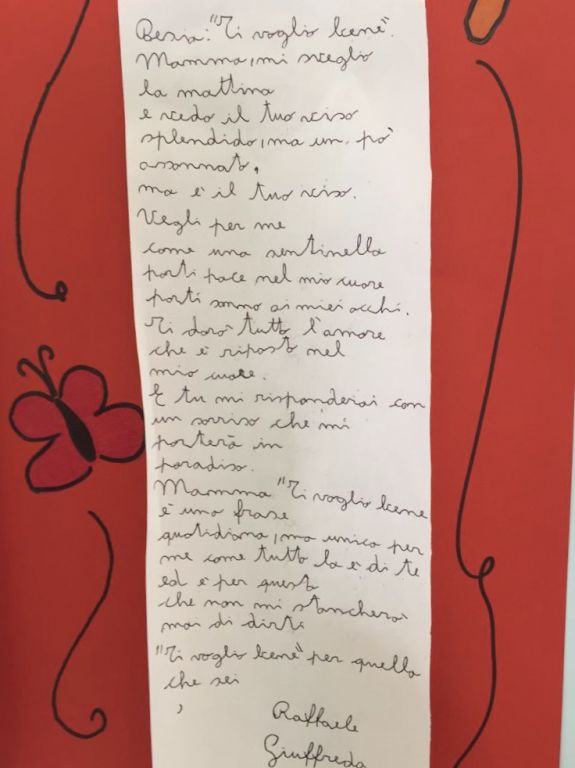 Poesia: "Ti voglio bene".
Mamma, mi sveglio
la mattina
e vedo il tuo viso
splendido, ma un pò
assonnato,
ma è il tuo viso.
Vegli per me
come una sentinella
porti pace nel mio cuore
porti sonno ai miei occhi.
Ti darò tutto l'amore
che è riposto nel
mio cuore.
E tu mi risponderai con
un sorriso che mi
porterà in
paradiso.
Mamma "Ti voglio bene
è una frase
quotidiana, ma unica per
me come tutto la è di te
ed è per questo
che non mi stancherò
mai di dirti
"Ti voglio bene" per quella
che sei
Raffaele
Giuffreda